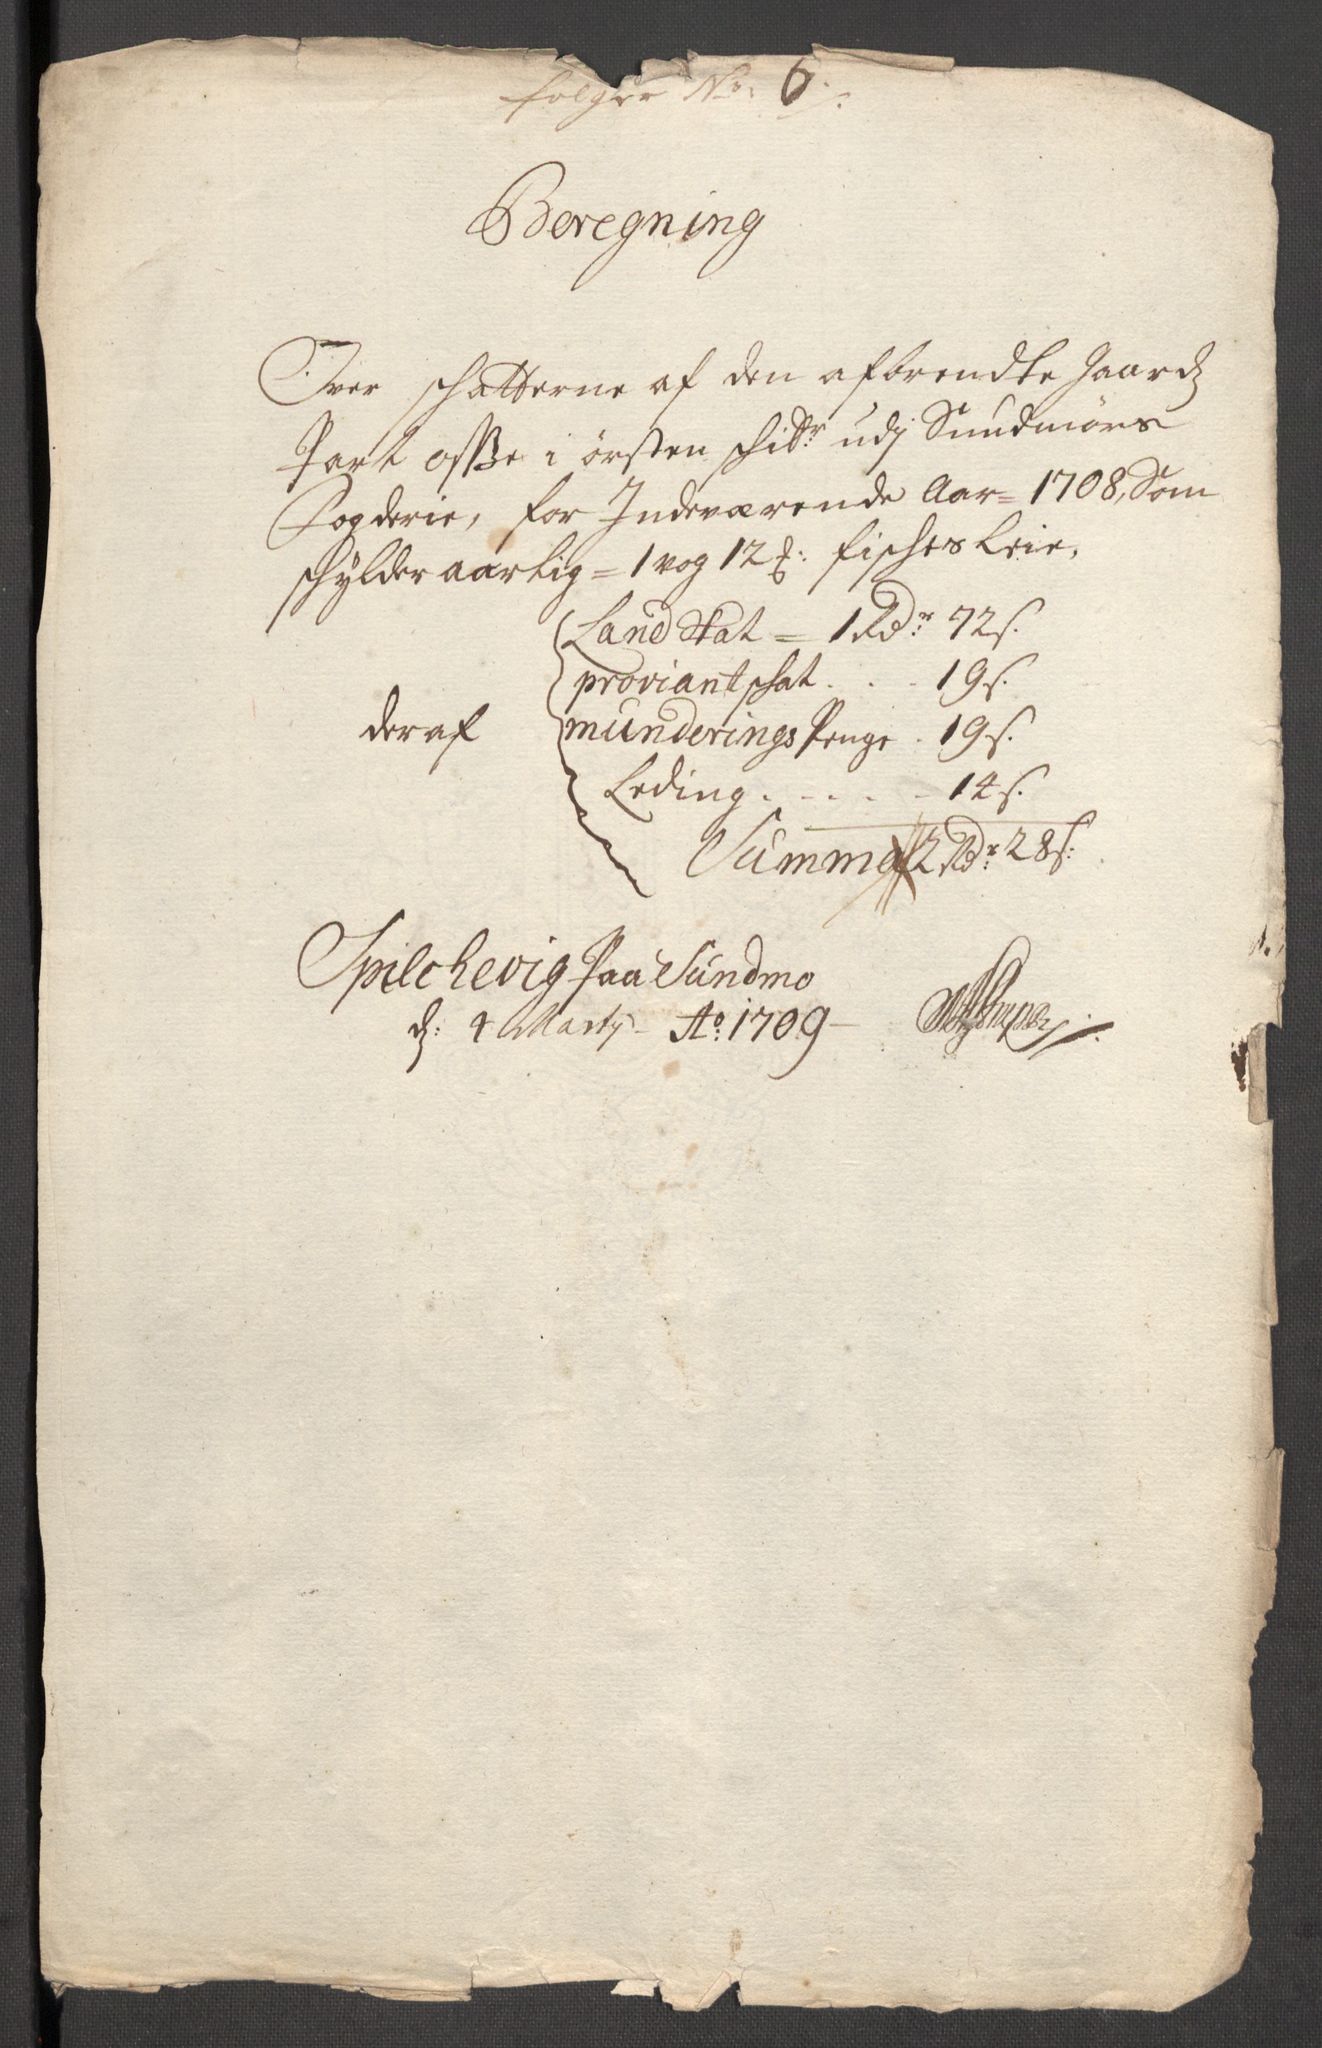 følger No: 6.
Beregning
Over schatterne af den afbrendte gaards
Part osße i ørsten schibr: udj Sundmørs
Fogderie, for Indeværende Aar = 1708, Som
schylder aarlig = 1 vog 12 ℔: fisches leie,
Land Skat = 1 Rdr: 72 s.
proviant schat . . - 19 s.
deraf munderings Penge . 19 s.
Leding . - . . - 14 s.
Summa 2 Rdr: 28 s:
Spilchevig Paa Sundmø
d: 4 Martij - Ao: 1709 -